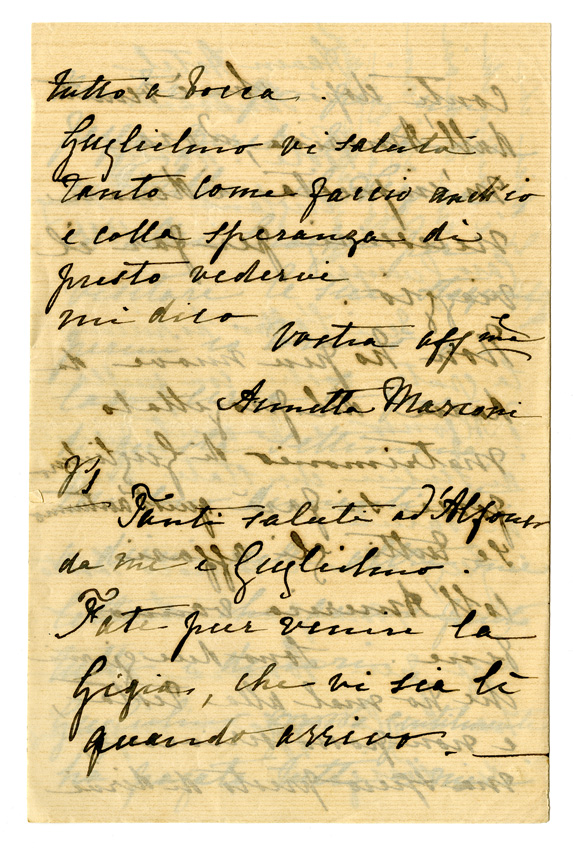 tutto a voce.
Guglielmo vi saluta
tanto come faccio anch'io
e colla speranza di
presto vedervi
mi dico
Vostra affma
Annetta Marconi
PS
Tanti saluti ad'Alfonso
da me e Guglielmo.
Fate pur venire la
Gigia, che vi sia lì
quando arrivo.